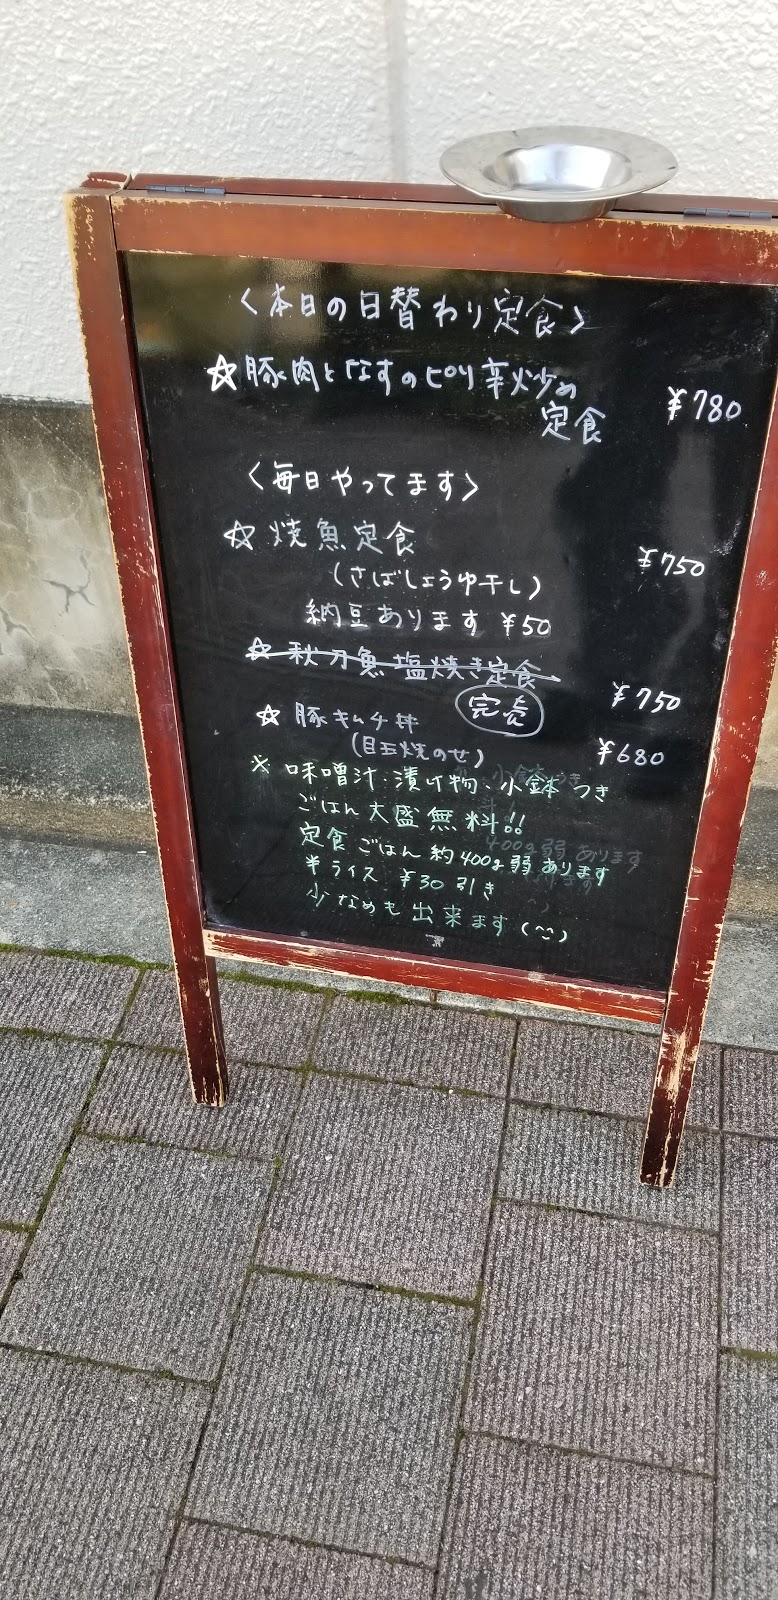 〈本日の日替わり定食〉
☆豚肉となすのピリ辛炒め
定食 ¥780
〈毎日やってます〉
☆焼魚定食 ¥750
(さばしょうゆ干し)
納豆あります ¥50
☆秋刀魚塩焼き定食 ¥750
完売
☆豚キムチ丼 ¥680
(目玉焼のせ)
※味噌汁・漬け物・小鉢つき
ごはん大盛無料!!
定食ごはん約400g弱あります
半ライス ¥30引き
少なめも出来ます(^^)